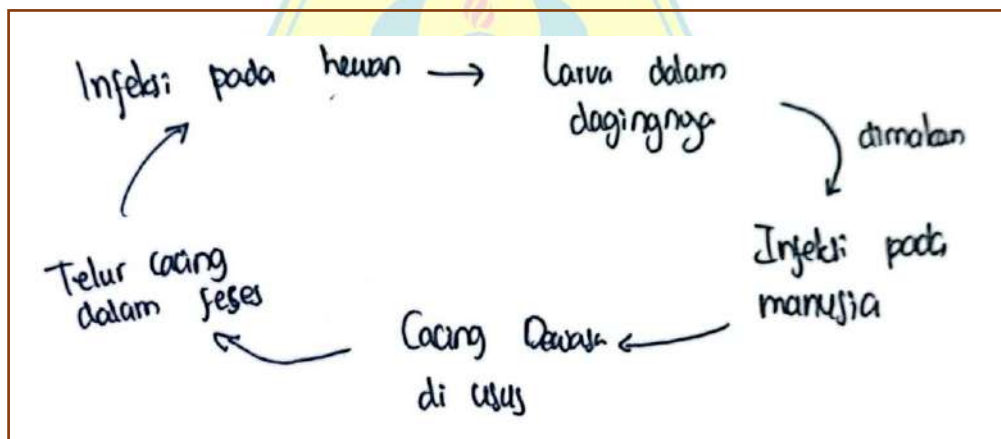 Infeksi pada hewan → Larva dalam
dagingnya
dimakan
Infeksi pada
manusia
Cacing Dewasa
di usus
Telur cacing
dalam feses